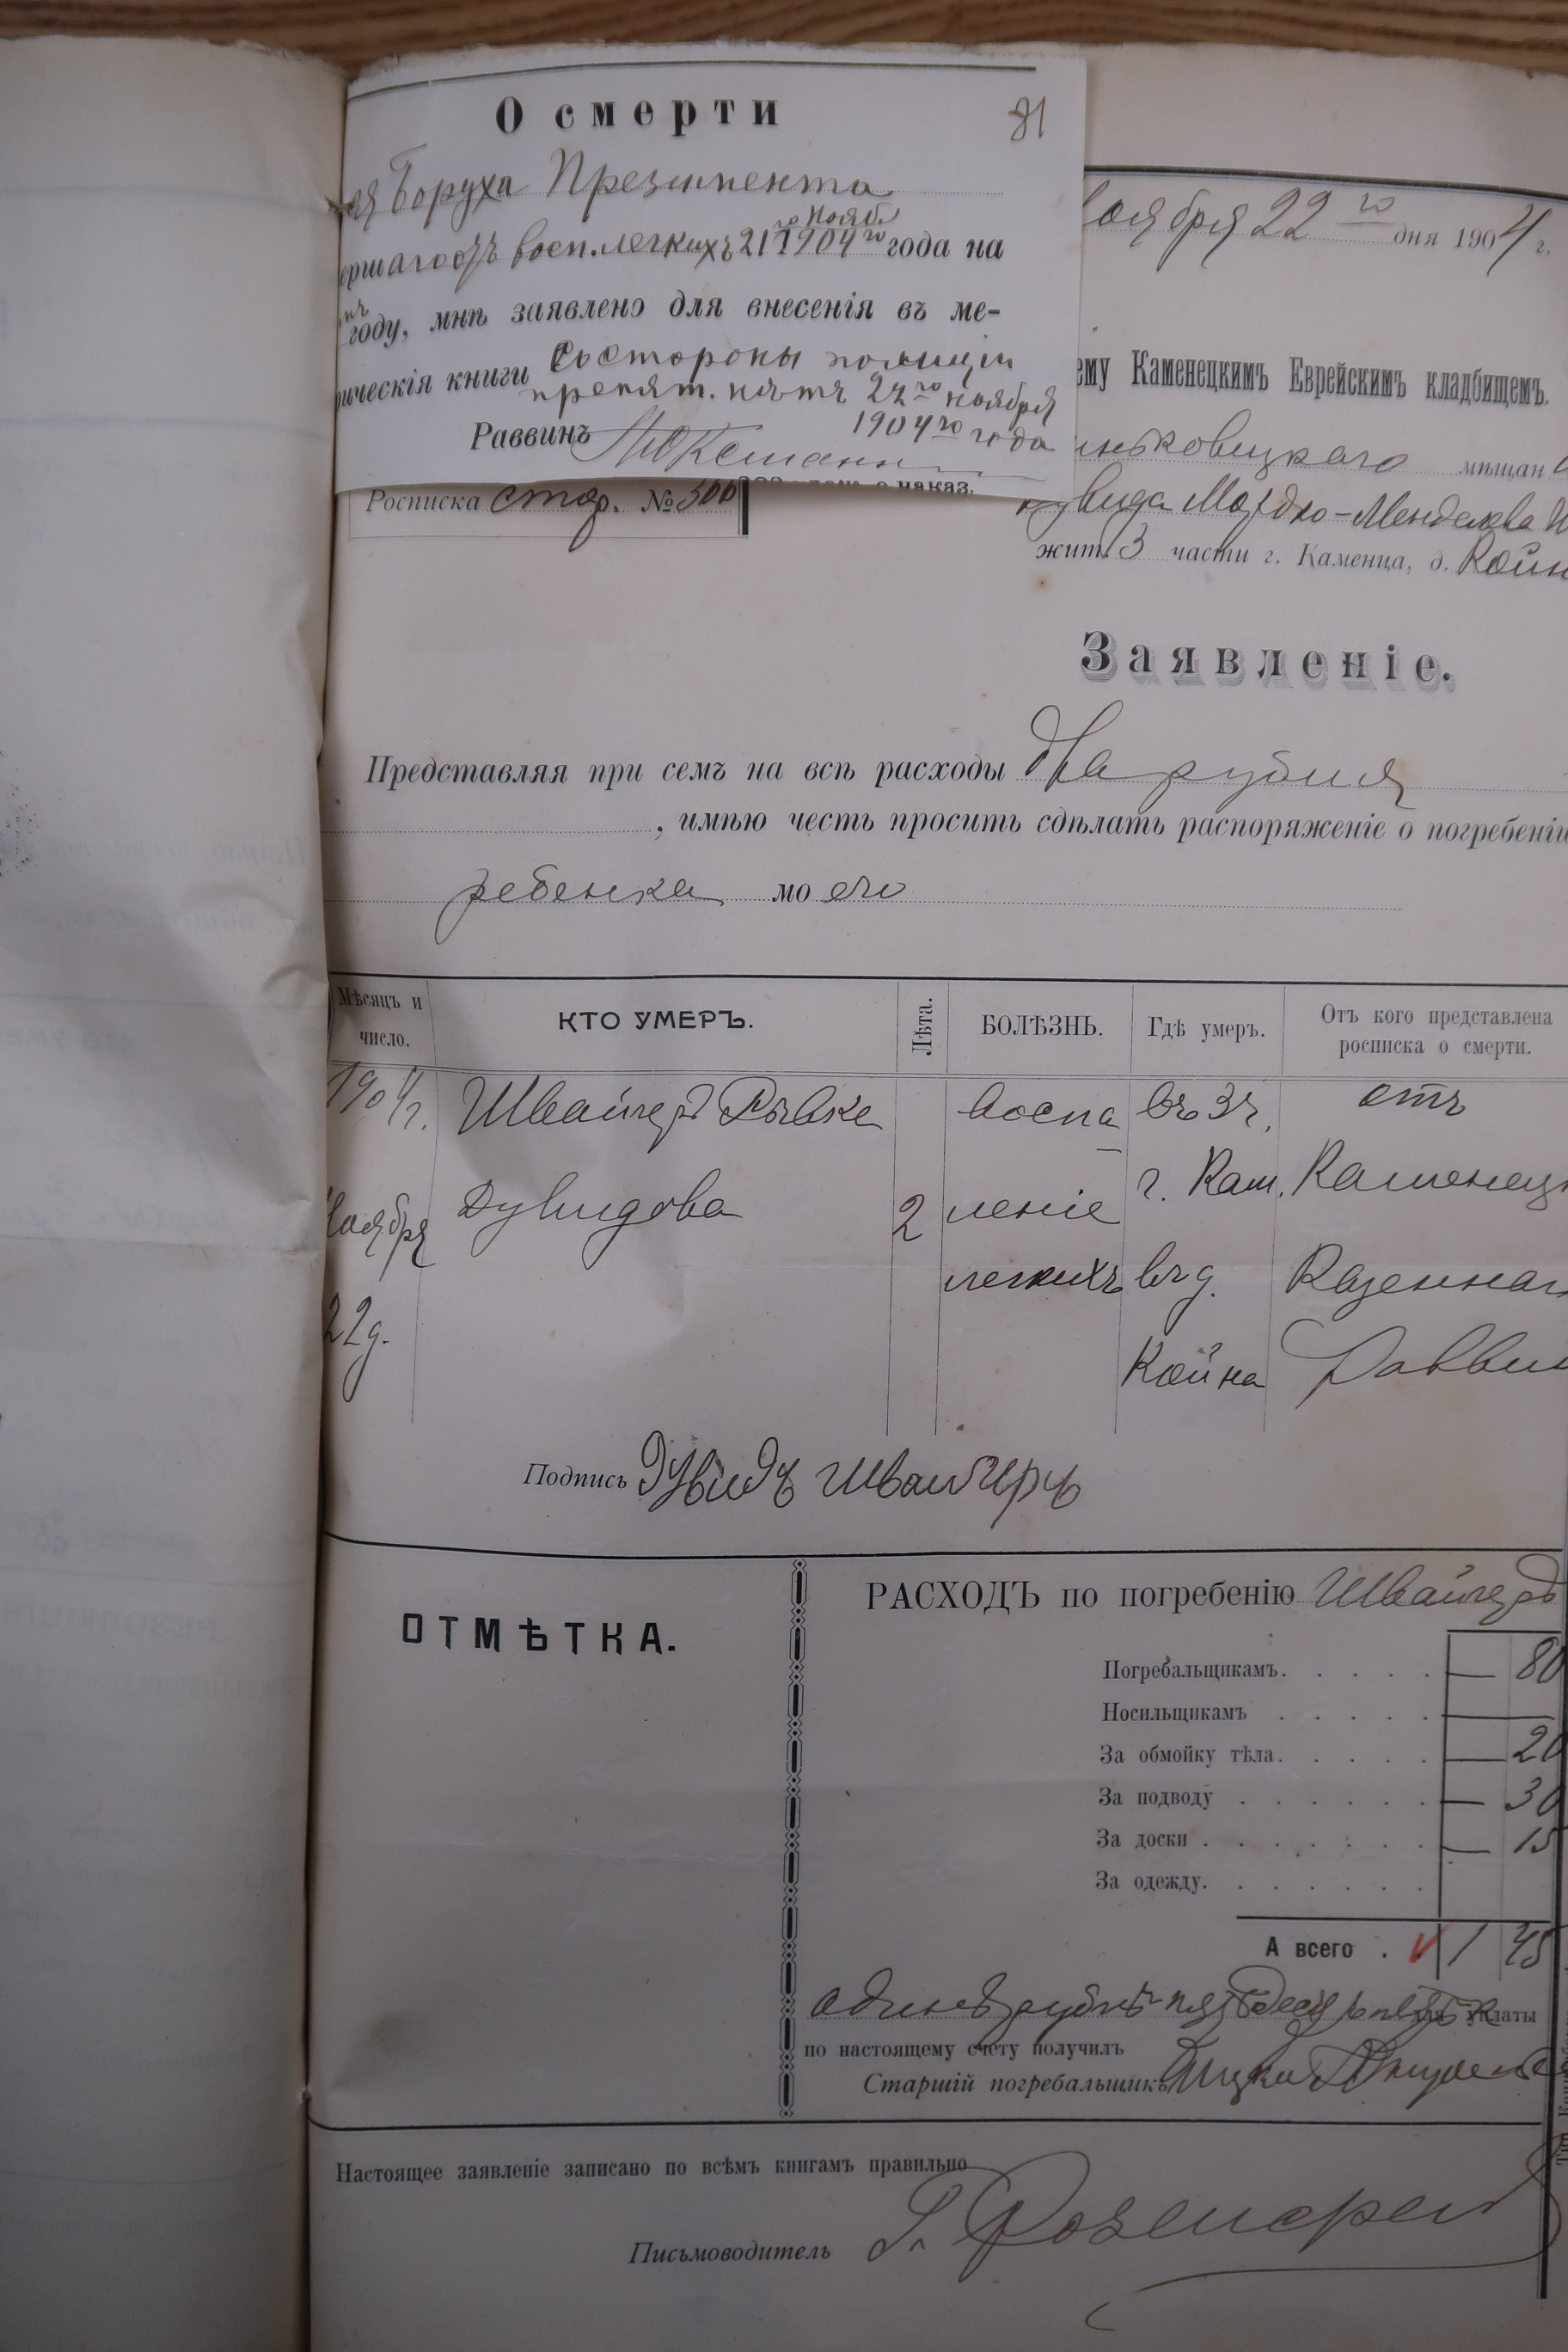 О смерти
81
Боруха Презимента
ершаго отъ восп. легкихъ 21 го Нояб. 1904 го года на
году, мнѣ заявлено для внесенія въ ме-
рическія книги Со стороны полиціи
препят. нѣтъ 22 го ноября
1904 го года
Раввинъ
Росписка стар. № 300
ноября 22 го дня 1904 г.
ему Каменецкимъ Еврейскимъ кладбищемъ.
мѣщан
Дувида Мордко-Менделева
жит. 3 части г. Каменца, д. Койн
Заявленіе.
Представляя при семъ на всѣ расходы два рубля
, имѣю честь просить сдѣлать распоряженіе о погребеніи
ребенка моего
Мѣсяцъ и число.
КТО УМЕРЪ.
Лѣта.
БОЛѢЗНЬ.
Гдѣ умеръ.
Отъ кого представлена росписка о смерти.
1904 г. Швайгеръ Ривка воспа въ 3 ч. отъ
ноября Дувидова 2 леніе г. Кам. Каменецк
22 д. легкихъ въ д. Казеннаго
Койна Раввин
Подпись Дувидъ Швайгеръ
ОТМѢТКА.
РАСХОДЪ по погребенію Швайгеръ
Погребальщикамъ. — 80
Носильщикамъ —
За обмойку тѣла. — 20
За подводу — 30
За доски — 15
За одежду.
А всего 1 45
для уплаты
по настоящему счету получилъ
Старшій погребальщикъ
Настоящее заявленіе записано по всѣмъ книгамъ правильно
Письмоводитель